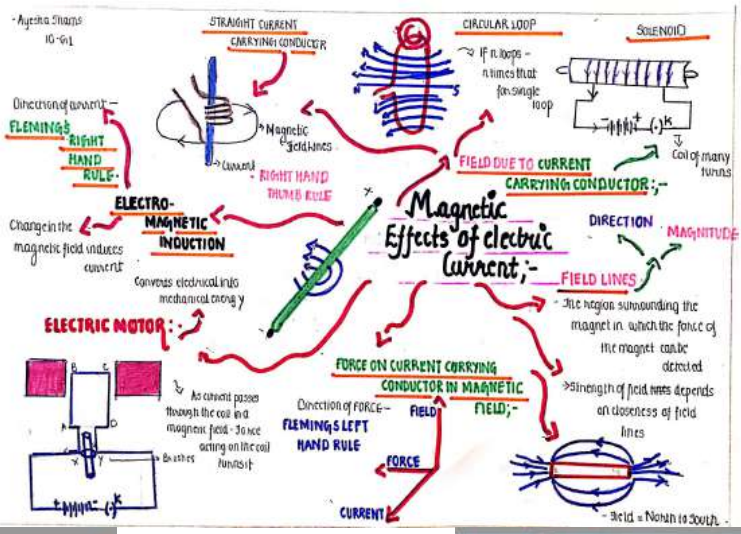 - Ayesha Shams
10-G1
STRAIGHT CURRENT
CARRYING CONDUCTOR
Magnetic
field lines
Current
RIGHT HAND
THUMB RULE
CIRCULAR LOOP
IF n loops -
n times that
for single
loop
N
S
SOLENOID
- +
(.) K
Coil of many
turns
FIELD DUE TO CURRENT
CARRYING CONDUCTOR:,-
Direction of current -
FLEMING'S
RIGHT
HAND
RULE.
ELECTRO-
MAGNETIC
INDUCTION
Change in the
magnetic field induces
current
Magnetic
Effects of electric
Current;-
X
DIRECTION
MAGNITUDE
FIELD LINES
- The region surrounding the
magnet in which the force of
the magnet can be
detected
Strength of field lines depends
on closeness of field
lines
- Field = North to South -
Converts electrical into
mechanical energy
ELECTRIC MOTOR:-
B C
A D
X Y
Brushes
+ - (.) K
As current passes
through the coil in a
magnetic field - Force
acting on the coil
turns it
FORCE ON CURRENT CARRYING
CONDUCTOR IN MAGNETIC
FIELD;-
Direction of FORCE-
FLEMINGS LEFT
HAND RULE
FIELD
FORCE
CURRENT